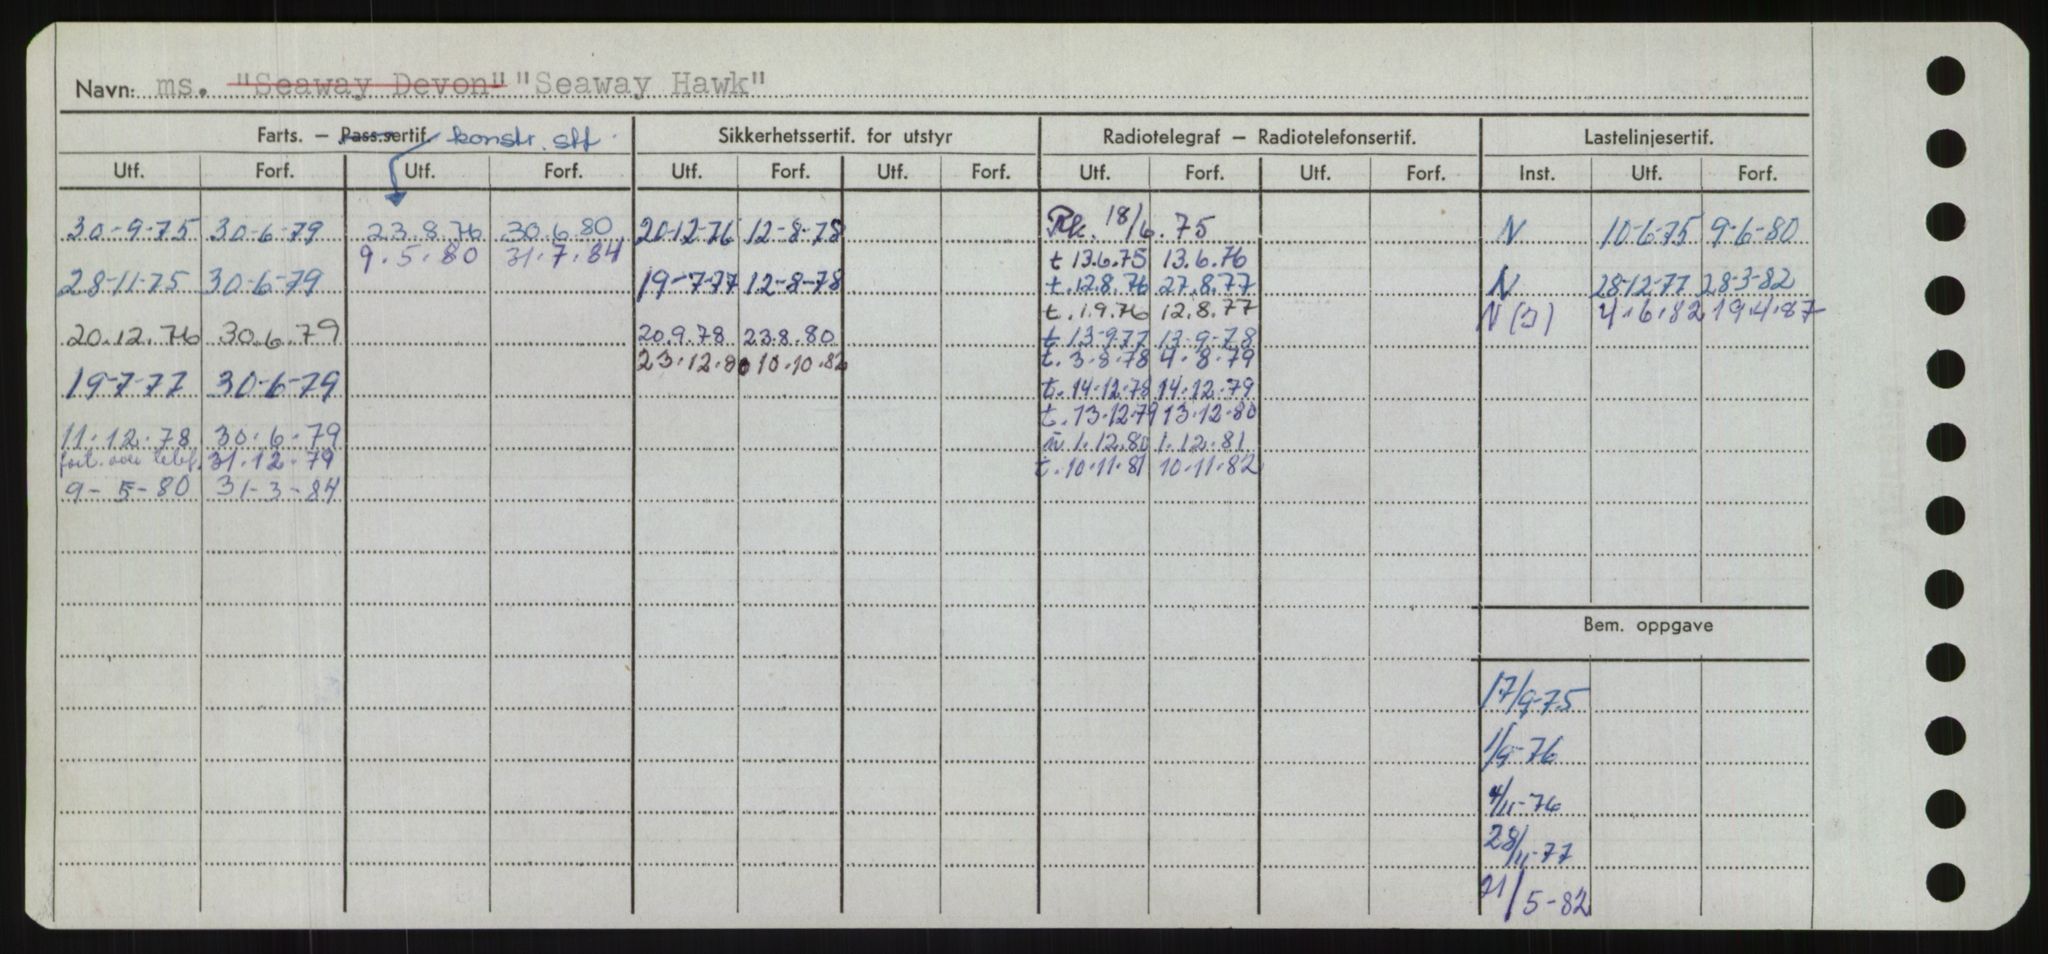 Navn: ms. "Seaway Devon" "Seaway Hawk"
Farts. — Pass.sertif. konstr. stf. Sikkerhetssertif. for utstyr Radiotelegraf — Radiotelefonsertif. Lastelinjesertif.
Utf. Forf. Utf. Forf. Utf. Forf. Utf. Forf. Utf. Forf. Utf. Forf. Inst. Utf. Forf.
30-9-75 30-6-79 23.8.76 30.6.80 20-12-76 12-8-78 Rk. 18/6.75 N 10-6-75 9-6-80
9.5.80 31.7.84 t 13.6.75 13.6.76
28-11-75 30-6-79 19-7-77 12-8-78 t. 12.8.76 27.8.77 N 28-12-77 28-3-82
t. 1.9.76 12.8.77 N (J) 4.6.82 19.4.87
20.12.76 30.6.79 20.9.78 23.8.80 t 13-9-77 13-9-78
23.12.80 10.10.82 t. 3-8-78 4-8-79
19-7-77 30-6-79 t. 14-12-78 14-12-79
t. 13-12-79 13-12-80
11.12.78 30.6.79 1.12.80 1.12.81
over telef. 31.12.79 t. 10.11.81 10-11-82
9-5-80 31-3-84
Bem. oppgave
17/9-75
1/9-76
4/11-76
28/11-77
21/5-82